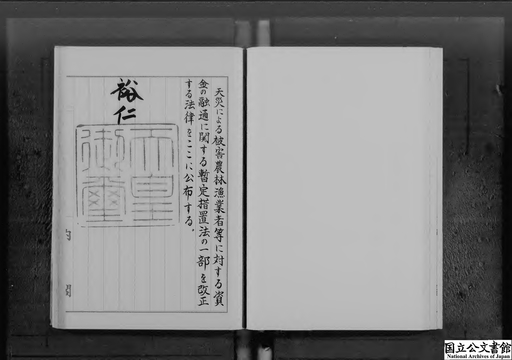 天災による被害農林漁業者等に対する資
金の融通に関する暫定措置法の一部を改正
する法律をここに公布する。
裕仁
天皇
御璽
国立公文書館
National Archives of Japan